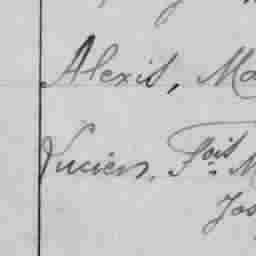 Alexis, Ma
Lucien, Fois M
Jos